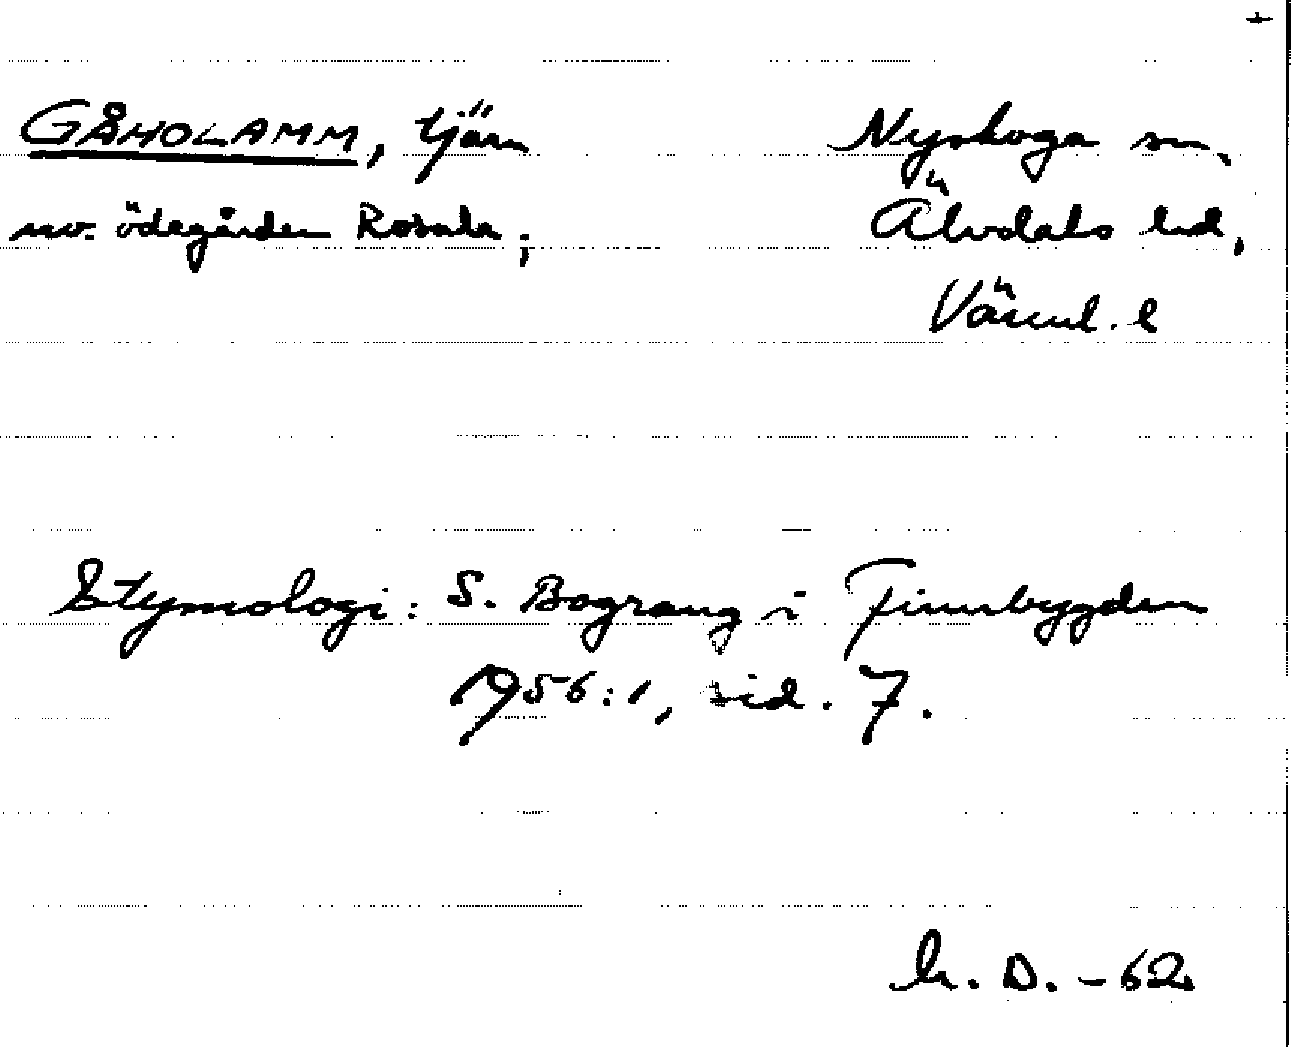 GÅHOLAMM, tjärn
Nyskoga sn,
nv. ödegården Rosala;
Älvdals hd,
Värml. l
Etymologi: S. Bograng i Finnbygden
1956:1, sid. 7.
h. D. -62